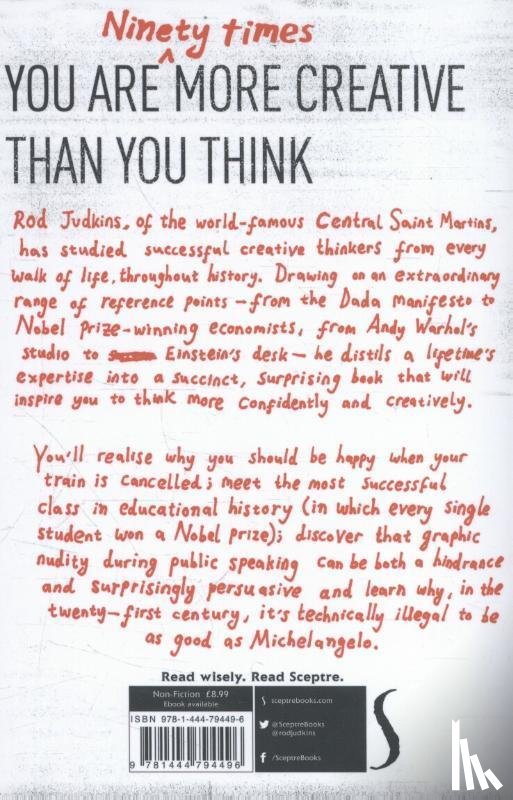 Ninety times
YOU ARE MORE CREATIVE
THAN YOU THINK
Rod Judkins, of the world-famous Central Saint Martins,
has studied successful creative thinkers from every
walk of life, throughout history. Drawing on an extraordinary
range of reference points – from the Dada manifesto to
Nobel Prize-winning economists, from Andy Warhol's
studio to Einstein's desk – he distils a lifetime's
expertise into a succinct, surprising book that will
inspire you to think more confidently and creatively.
You'll realise why you should be happy when your
train is cancelled; meet the most successful
class in educational history (in which every single
student won a Nobel prize); discover that graphic
nudity during public speaking can be both a hindrance
and surprisingly persuasive and learn why, in the
twenty-first century, it's technically illegal to be
as good as Michelangelo.
Read wisely. Read Sceptre.
Non-Fiction £8.99
Ebook available
ISBN 978-1-444-79449-6
9 781444 794496
sceptrebooks.com
@SceptreBooks
@rodjudkins
/SceptreBooks